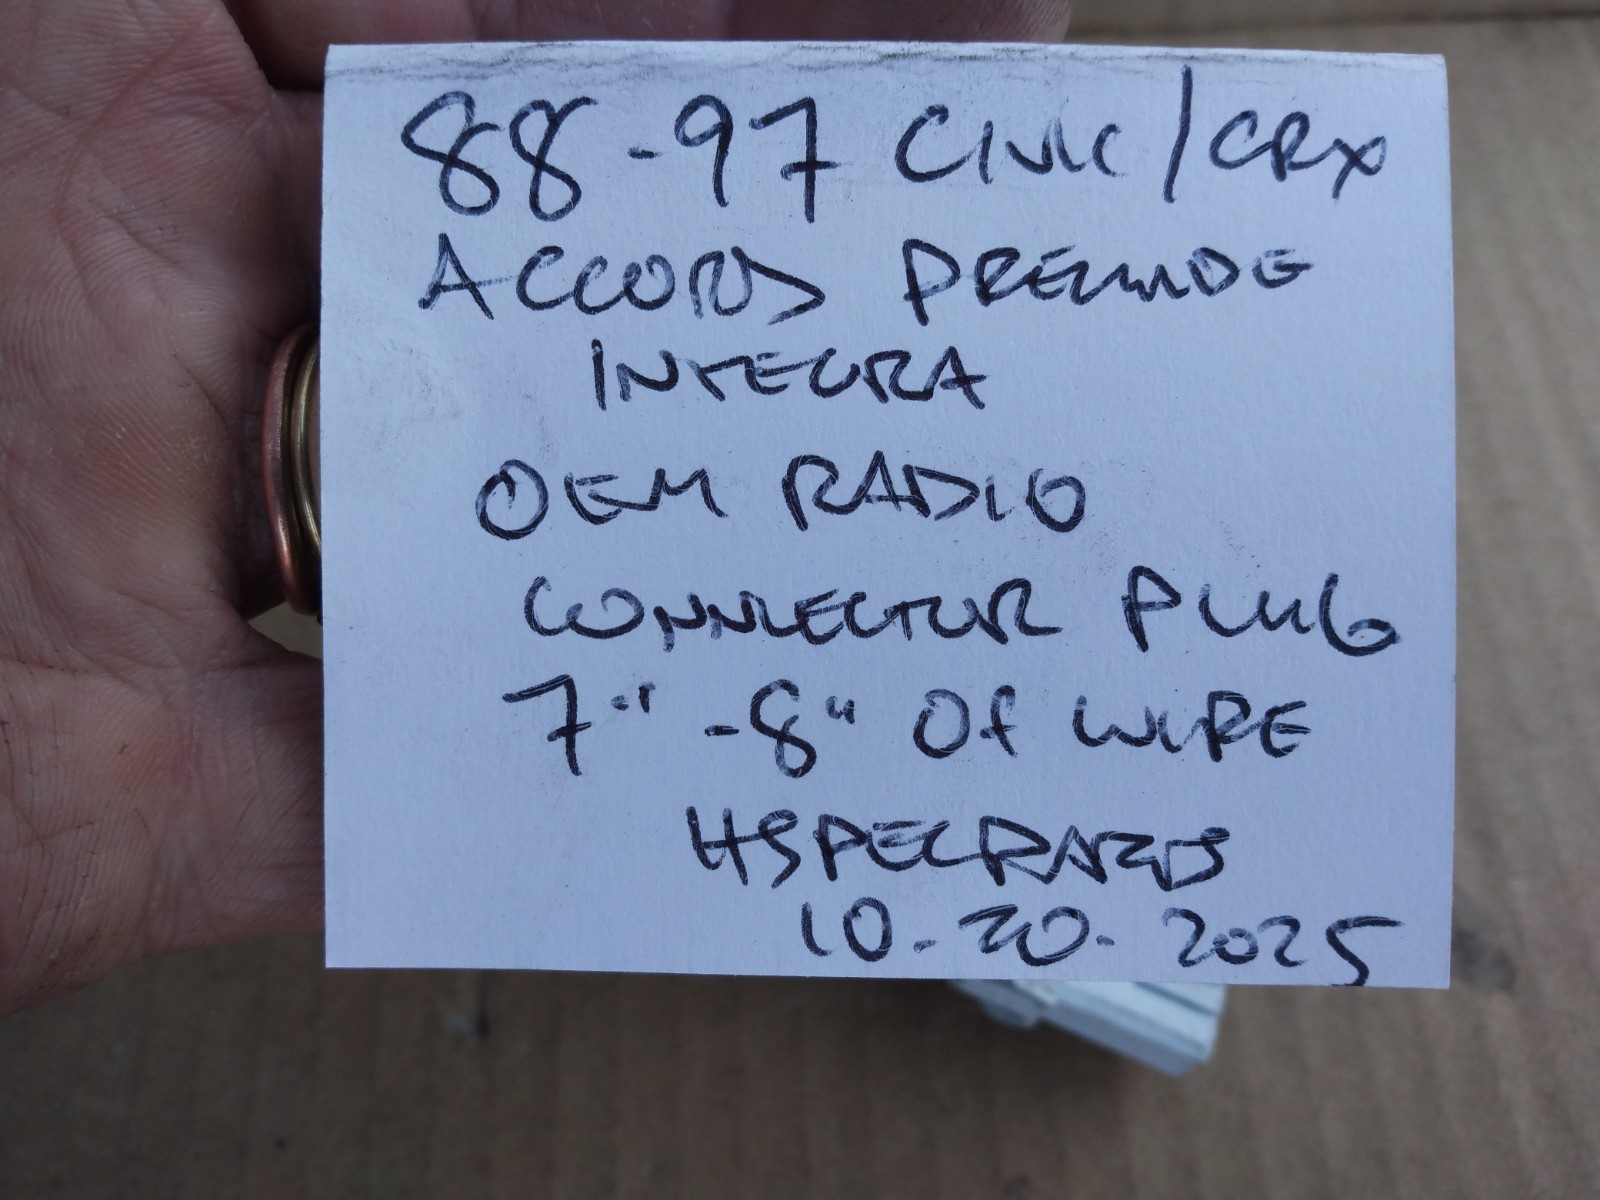 88-97 CIVIC/CRX
ACCORD PRELUDE
INTEGRA
OEM RADIO
CONNECTOR PLUG
7" -8" OF WIRE
10-20-2025